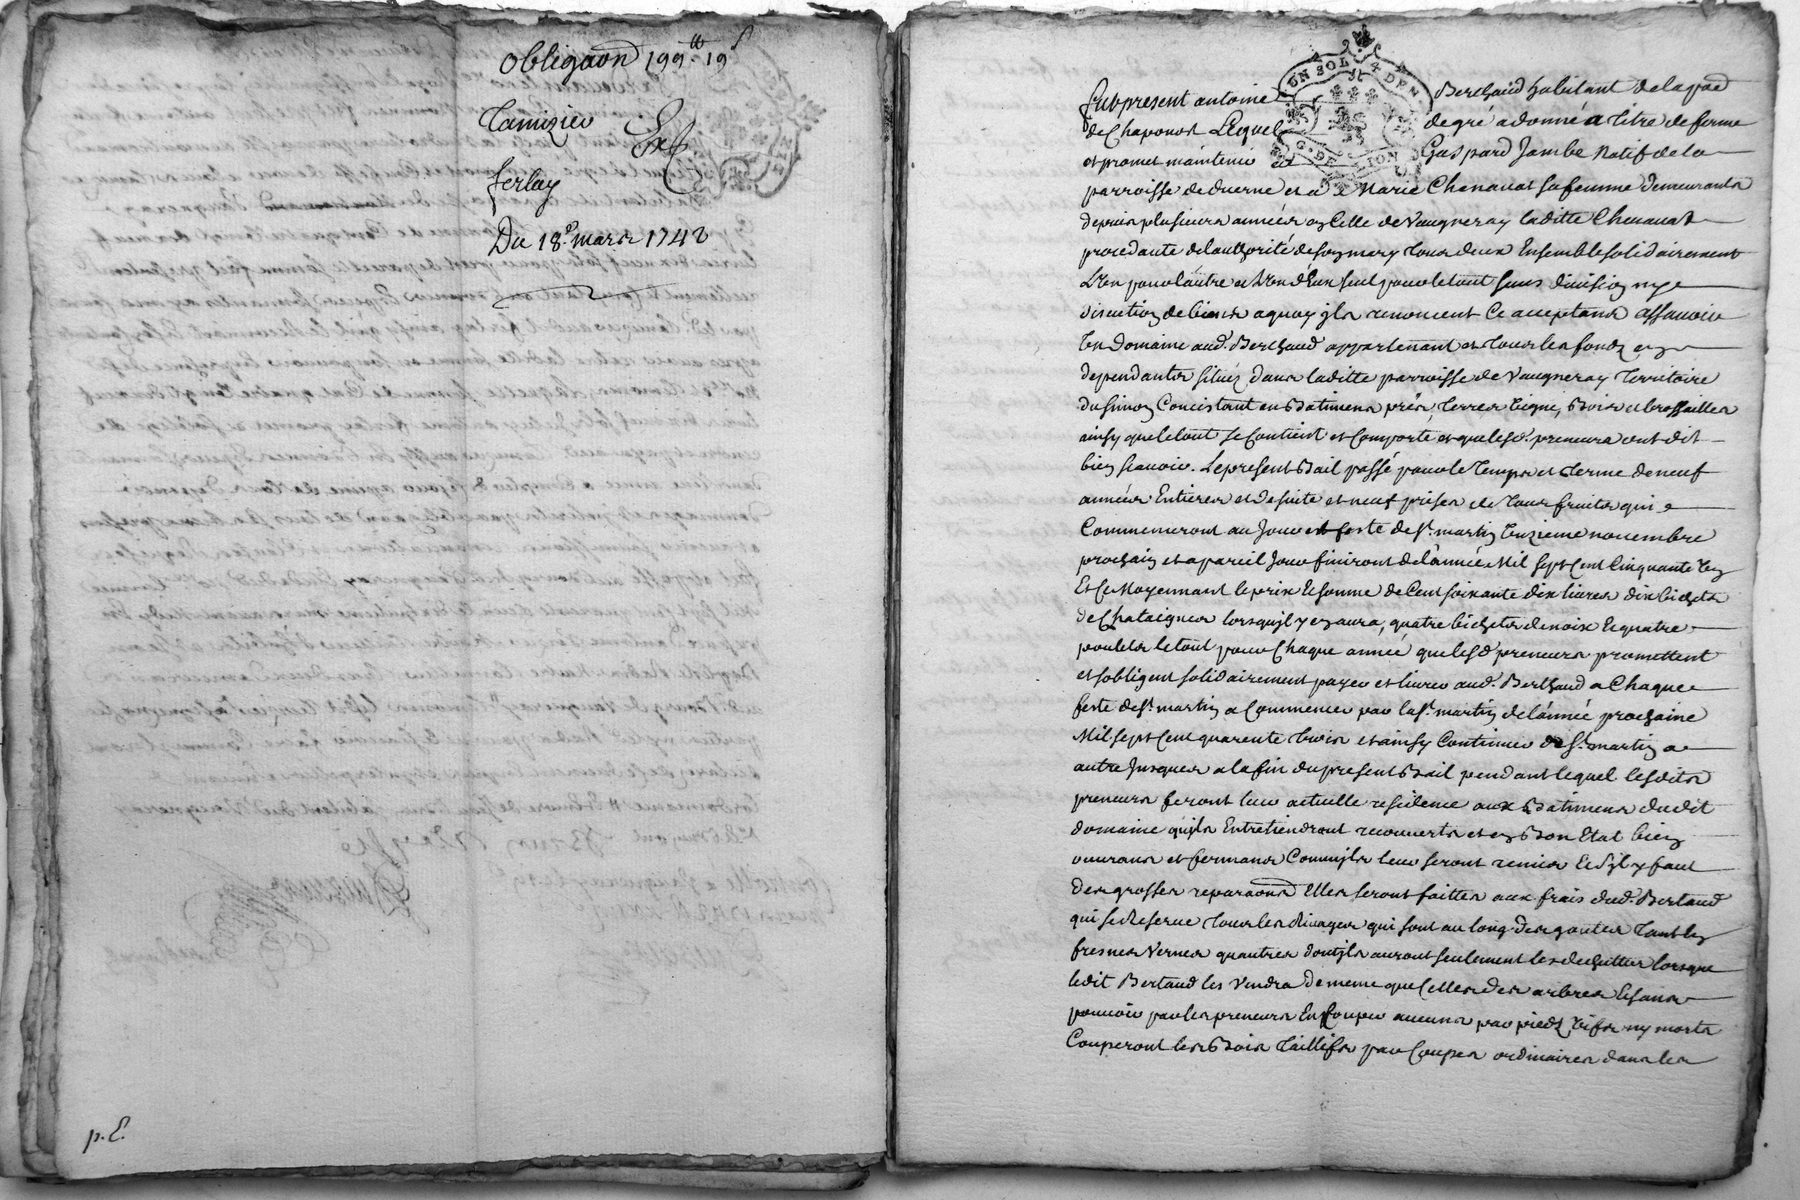 Obligaon 199.tt 19 s
Tamizier
Ex
ferlay
Du 18.e mars 1742
p. E.
UN SOL 4 DEN.
G. DE LION
fut present antoine Berthaud habitant dela par
de Chaponost Lequel de gré a donné a titre de ferme
et promet maintenir a Gaspard Jambe Natif de la
parroisse de duerne et a Marie Chenavat sa femme demeurants
depuis plusieurs années en Celle de Vaugneray laditte Chenavat
procedante del authorité de son mary tous deux Ensemble solidairement
L'un pour l'autre et L'un d'Eux seul pour letout sans division ny
discution de biens a quoy ils renoncent Ce acceptans assavoir
Un Domaine aud. Berthaud appartenant et tous les fonds en
dependants situéz dans laditte parroisse de Vaugneray territoire
Concistant en Batimens prés, terres vigne, Bois et brossailles
ainsy que letout se Contient et Comporte et que lesd. preneurs ont dit
bien scavoir. Le present Bail passé pour le temps et terme de neuf
années Entieres et de suite et neuf prises de tous fruits qui
Commenceront au Jour et feste de St. martin Unzieme novembre
prochain et a pareil Jour finiront de l'année Mil sept Cent Cinquante Un
Et Ce Moyennant le prix Et somme de Cent soixante dix livres dix bichets
de Chataignes lorsqu'il y en aura, quatre bichets de noix Et quatre
poulets letout pour Chaque année que lesd. preneurs promettent
et s'obligent solidairement payer et livrer aud. Berthaud a Chaque
feste de St. martin a Commencer par la St. martin de l'année prochaine
Mil sept Cent quarente trois et ainsy Continuer de St. martin a
autre Jusques a la fin du present Bail pendant lequel lesdits
preneurs feront leur actuelle residence aux Batimens dudit
domaine qu'ils Entretiendront recouverts et en Bon Etat bien
ouvrans et fermans Comm'ils leur seront remis Et S'il y faut
des grosses reparaons Elles seront faittes aux frais dud. Bertaud
qui se Reserve tous les Rivages qui sont au long des gouttes tant en
fresnes Vernes qu'autres dont ils auront seulement les lorsque
ledit Bertaud les Vendra De meme que Celles des arbres Et sans
pouvoir par les preneurs En Couper aucuns par pieds vifs ny morts
Couperont les Bois taillifs par Coupes ordinaires dans les